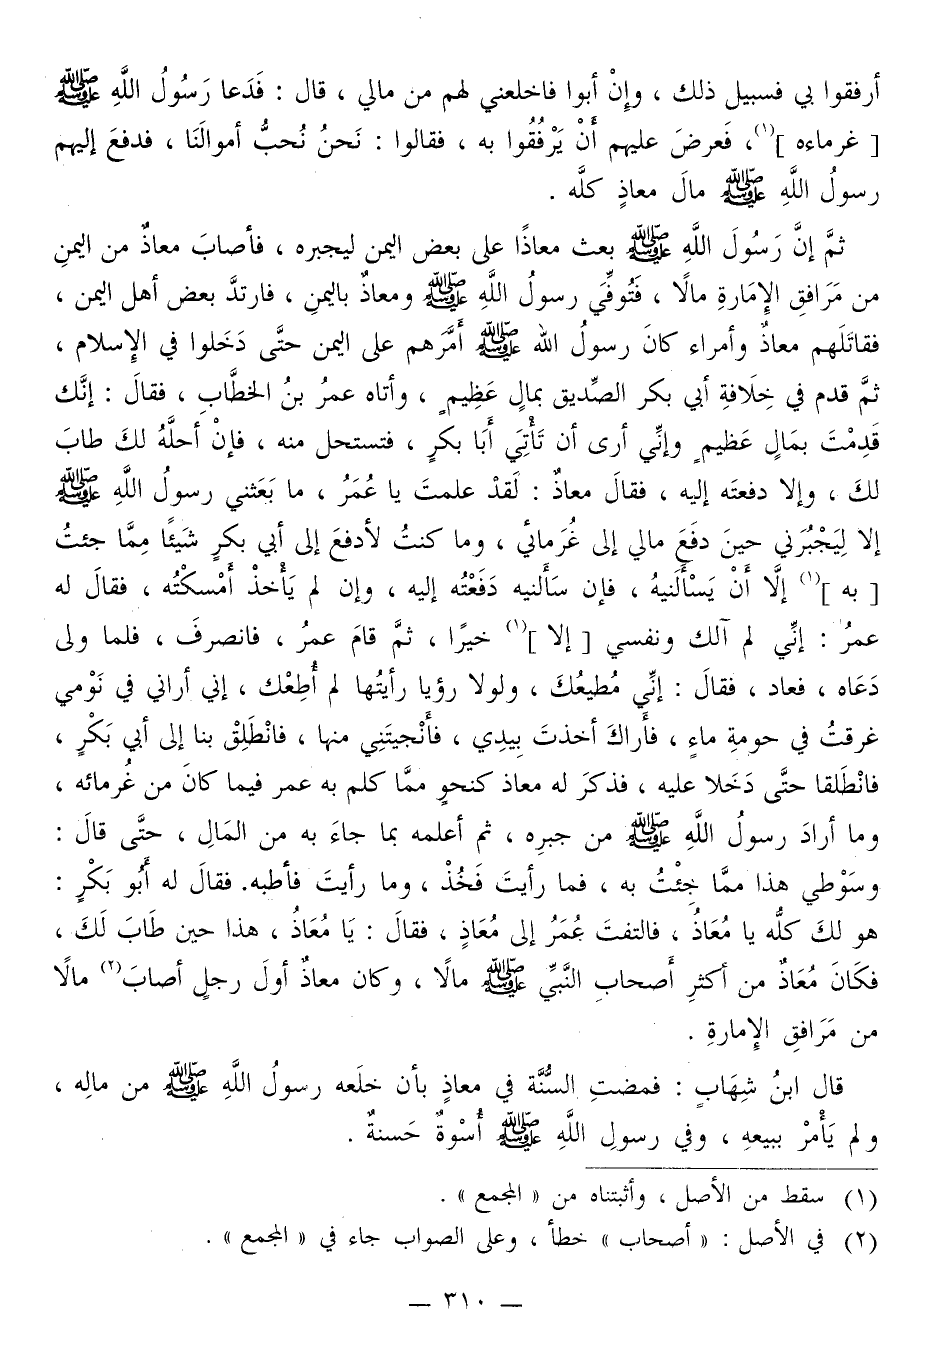 أرفقوا بي فسبيل ذلك ، وإِنْ أبوا فاخلعني لهم من مالي ، قال : فَدَعا رَسُولُ اللَّهِ ﷺ
[ غرماءه ]<sup>(١)</sup>، فَعرضَ عليهم أَنْ يَرْفُقُوا به ، فقالوا : نَحنُ نُحبُّ أموالَنَا ، فدفعَ إليهم
رسولُ اللَّهِ ﷺ مالَ معاذٍ كلَّه .
ثمَّ إنَّ رَسُولَ اللَّهِ ﷺ بعث معاذًا على بعض اليمن ليجبره ، فأصابَ معاذٌ من اليمنِ
من مَرَافقِ الإِمَارةِ مالًا ، فَتُوفِّيَ رسولُ اللَّهِ ﷺ ومعاذٌ باليمنِ ، فارتدَّ بعض أهل اليمن ،
فقاتَلَهم معاذٌ وأمراء كانَ رسولُ الله ﷺ أَمَّرَهم على اليمن حتَّى دَخَلوا في الإسلام ،
ثمَّ قدم في خِلَافةِ أبي بكر الصِّديق بمالٍ عَظِيمٍ ، وأتاه عمرُ بنُ الخطَّابِ ، فقالَ : إنَّك
قَدِمْتَ بمَالٍ عَظيمٍ وإنِّي أرى أن تَأْتِيَ أَبَا بكرٍ ، فتستحل منه ، فإنْ أحلَّهُ لكَ طابَ
لكَ ، وإلا دفعتَه إليه ، فقالَ معاذٌ : لَقدْ علمتَ يا عُمَرُ ، ما بَعَثني رسولُ اللَّهِ ﷺ
إلا لِيَجْبُرَني حينَ دفَعَ مالي إلى غُرَمائي ، وما كنتُ لأدفعَ إلى أبي بكرٍ شَيئًا مِمَّا جئتُ
[ به ]<sup>(١)</sup> إلَّا أَنْ يَسْأَلَنيهُ ، فإن سَألنيه دَفَعْتُه إليه ، وإن لم يَأْخذْ أَمْسكْتُه ، فقالَ له
عمرُ : إنِّي لم آلك ونفسي [ إلا ]<sup>(١)</sup> خيرًا ، ثمَّ قامَ عمرُ ، فانصرفَ ، فلما ولى
دَعَاه ، فعاد ، فقالَ : إنِّي مُطيعُكَ ، ولولا رؤيا رأيتُها لم أُطِعْك ، إني أراني في نَوْمي
غرقتُ في حومةِ ماءٍ ، فأَراكَ أخذتَ بِيدِي ، فأَنْجيتَنِي منها ، فانْطَلِقْ بنا إلى أبي بَكْرٍ ،
فانْطَلقا حتَّى دَخَلا عليه ، فذكرَ له معاذ كنحوٍ ممَّا كلم به عمر فيما كانَ من غُرمائه ،
وما أرادَ رسولُ اللَّهِ ﷺ من جبرِه ، ثم أعلمه بما جاءَ به من المَالِ ، حتَّى قالَ :
وسَوْطي هذا ممَّا جِئْتُ به ، فما رأيتَ فَخُذْ ، وما رأيتَ فأطبه. فقالَ له أَبُو بَكْرٍ :
هو لكَ كلُّه يا مُعَاذُ ، فالتفتَ عُمَرُ إلى مُعَاذٍ ، فقالَ : يَا مُعَاذُ ، هذا حين طَابَ لَكَ ،
فكَانَ مُعَاذٌ من أكثرِ أَصحابِ النَّبيِّ ﷺ مالًا ، وكان معاذٌ أولَ رجلٍ أصابَ<sup>(٢)</sup> مالًا
من مَرَافقِ الإمارةِ .
قال ابنُ شِهَابٍ : فمضتِ السُّنَّة في معاذٍ بأن خلَعه رسولُ اللَّهِ ﷺ من مالِه ،
ولم يَأْمرْ ببيعهِ ، وفي رسولِ اللَّهِ ﷺ أُسْوةٌ حَسنةٌ .
(١) سقط من الأصل ، وأثبتناه من « المجمع » .
(٢) في الأصل : « أصحاب » خطأ ، وعلى الصواب جاء في « المجمع » .
— ٣١٠ —